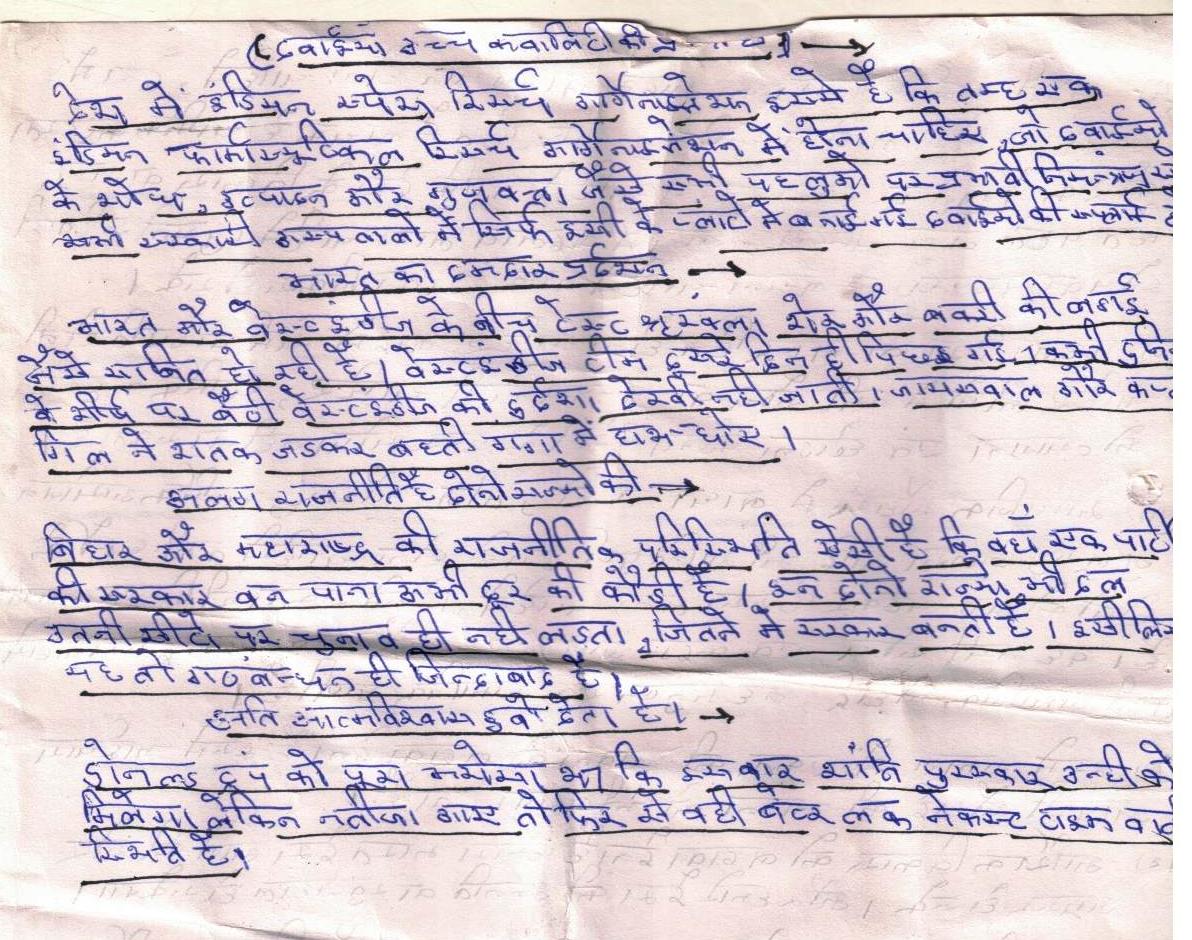 (दवाईयां उच्च क्वालिटी की
देश में इंडियन स्पेस रिसर्च आर्गेनाइजेशन इसरो है कि तरह एक
इंडियन फार्मास्यूटिकल रिसर्च आर्गेनाइजेशन में होना चाहिए, जो दवाईयों
के शोध, उत्पादन और गुणवत्ता जैसे सभी पहलुओं पर प्रभावी नियंत्रण
सभी सरकारी अस्पतालों में सिर्फ इसी के प्लांट में बनाई गई दवाईयों की सप्लाई
भारत का दमदार प्रदर्शन
भारत और वेस्टइंडीज के बीच टेस्ट श्रृंखला शेर और बकरी की लडाई
जैसे साबित हो रही है। वेस्टइंडीज टीम दूसरे दिन ही पिछड गई। कभी
के शीर्ष पर बैठी वेस्टइंडीज की दुर्दशा देखी नही जाती। जायसवाल और
गिल ने शतक जडकर बहती गंगा में हाथ धोए।
अलग राजनीति है दोनो राज्यो की
बिहार और महाराष्ट्र की राजनीतिक परिस्थिति ऐसी है कि वहाँ एक पार्टी
की सरकार बन पाना अभी दूर की कौडी है। इन दोनो राज्यो दल
उतनी सीटो पर चुनाव ही नही लडता, जितने में सरकार बनती है। इसीलिए
यह तो गठबन्धन ही जिन्दाबाद है।
अति आत्मविश्वास डुबो देता है।
डोनल्ड ट्रंप को पूरा भरोसा था कि इसबार शांति पुरस्कार उन्ही को
मिलेगा लेकिन नतीजा आए तो फिर से वही बेटर लक नेक्स्ट टाइम
स्थिति है।